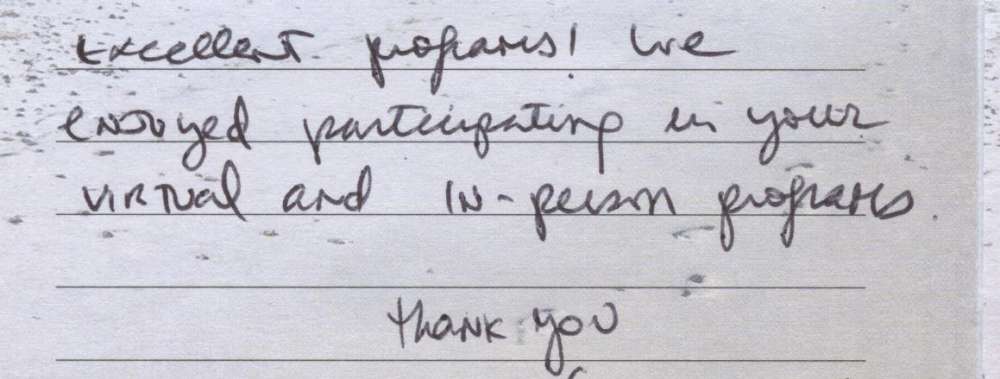 Excellent programs! We
enjoyed participating in your
virtual and in-person programs.
Thank you